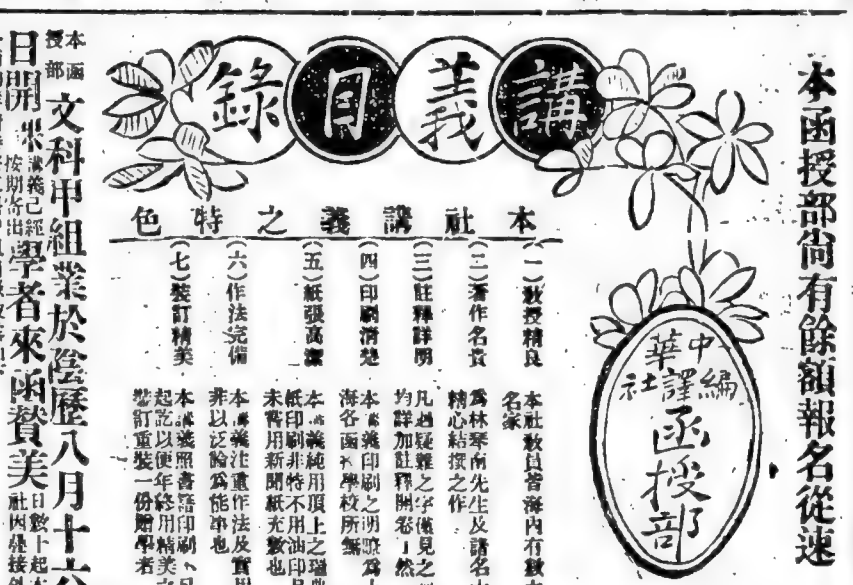 本函授部尚有餘額報名從速
講義目錄
中華編譯社
函授部
本社講義之特色
(一)教授精良
本社教員皆海內有數
名家
(二)著作名貴
為林琴南先生及諸名
精心結撰之作
(三)註釋詳明
凡遇疑難之字僅見之
均詳加註釋開卷了然
(四)印刷清楚
本講義印刷之明瞭為
海各函學校所無
(五)紙張高潔
本講義純用頂上之瑞典
紙印刷非特不用油印
未嘗用新聞紙充數也
(六)作法完備
本講義注重作法及實用
非以泛論為能事也
(七)裝訂精美
本講義照書籍印刷
起訖以便年終用精美之
裝訂重裝一份贈學者
本函授部
文科甲組業於陰歷八月十六
日開課
講義已經按期寄出
學者來函贊美
日數十起